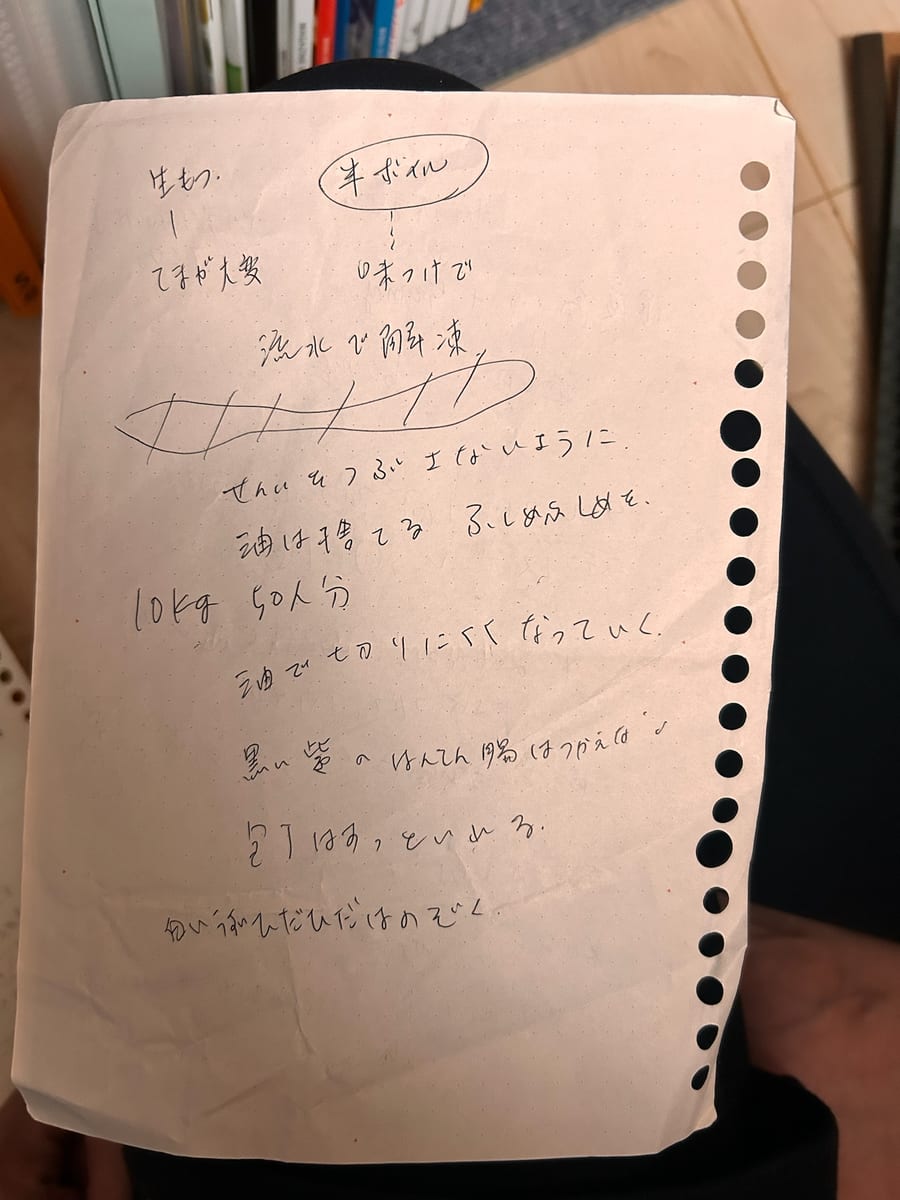 生もつ. 半ボイル
てまが大変 味つけで
流水で解凍
せんいをつぶさないように.
油は捨てる ふしめふしめを.
10kg 50人分
油で切りにくくなっていく.
黒い紫のはんてん腸はつかえない
包丁はすっといれる.
白い ひだひだはのぞく.